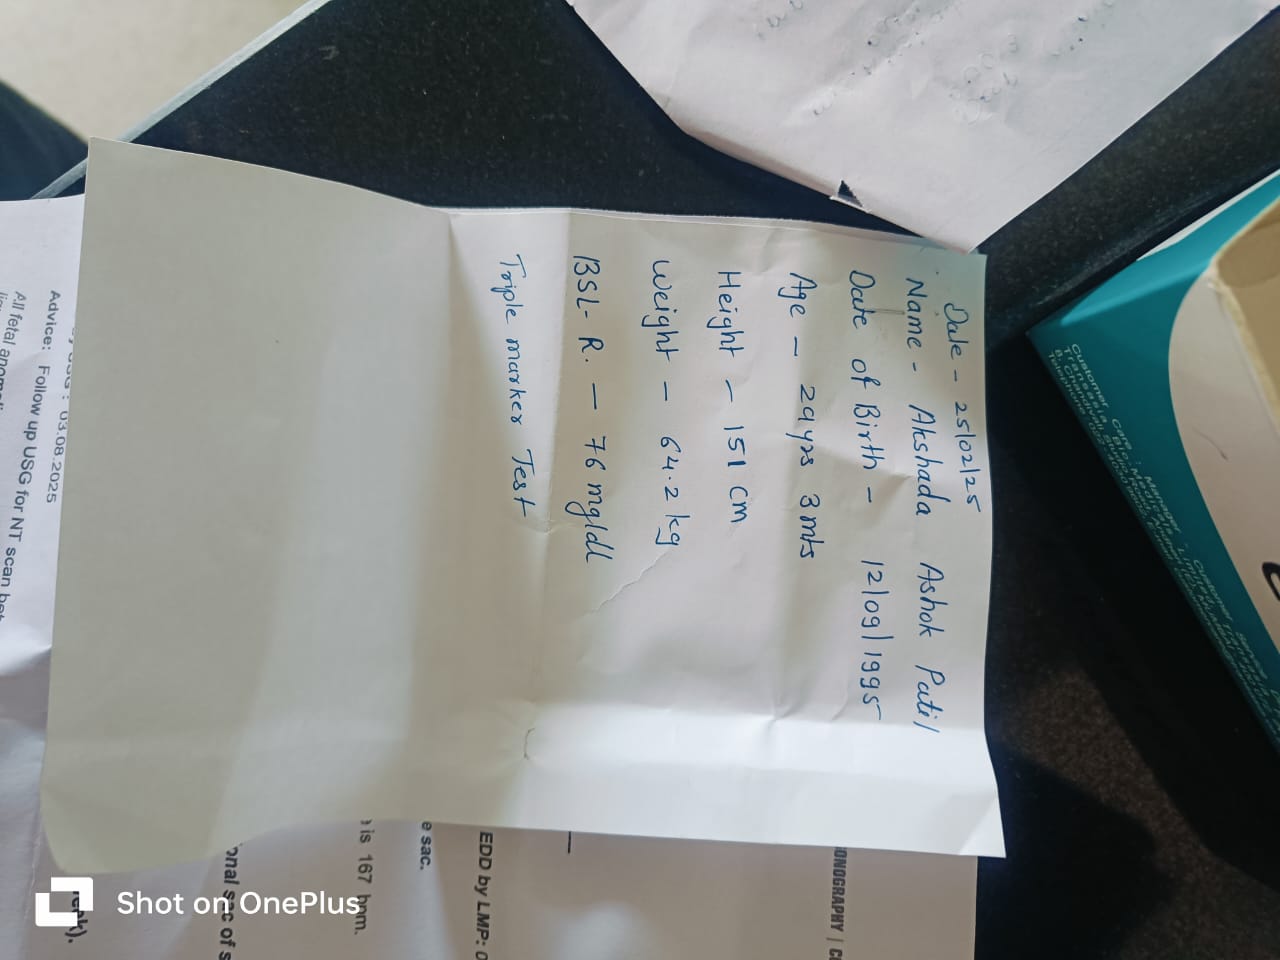 Date - 25/02/25
Name - Akshada Ashok Patil
Date of Birth - 12/09/1995
Age - 29yrs 3mts
Height - 151 cm
Weight - 64.2 kg
BSL- R. - 76 mg/dl
Triple marker Test
ONOGRAPHY |
EDD by LMP:
e sac.
is 167 bpm.
sac of
: 03.08.2025
Advice: Follow up USG for NT scan
All fetal
Customer Care
Shot on OnePlus